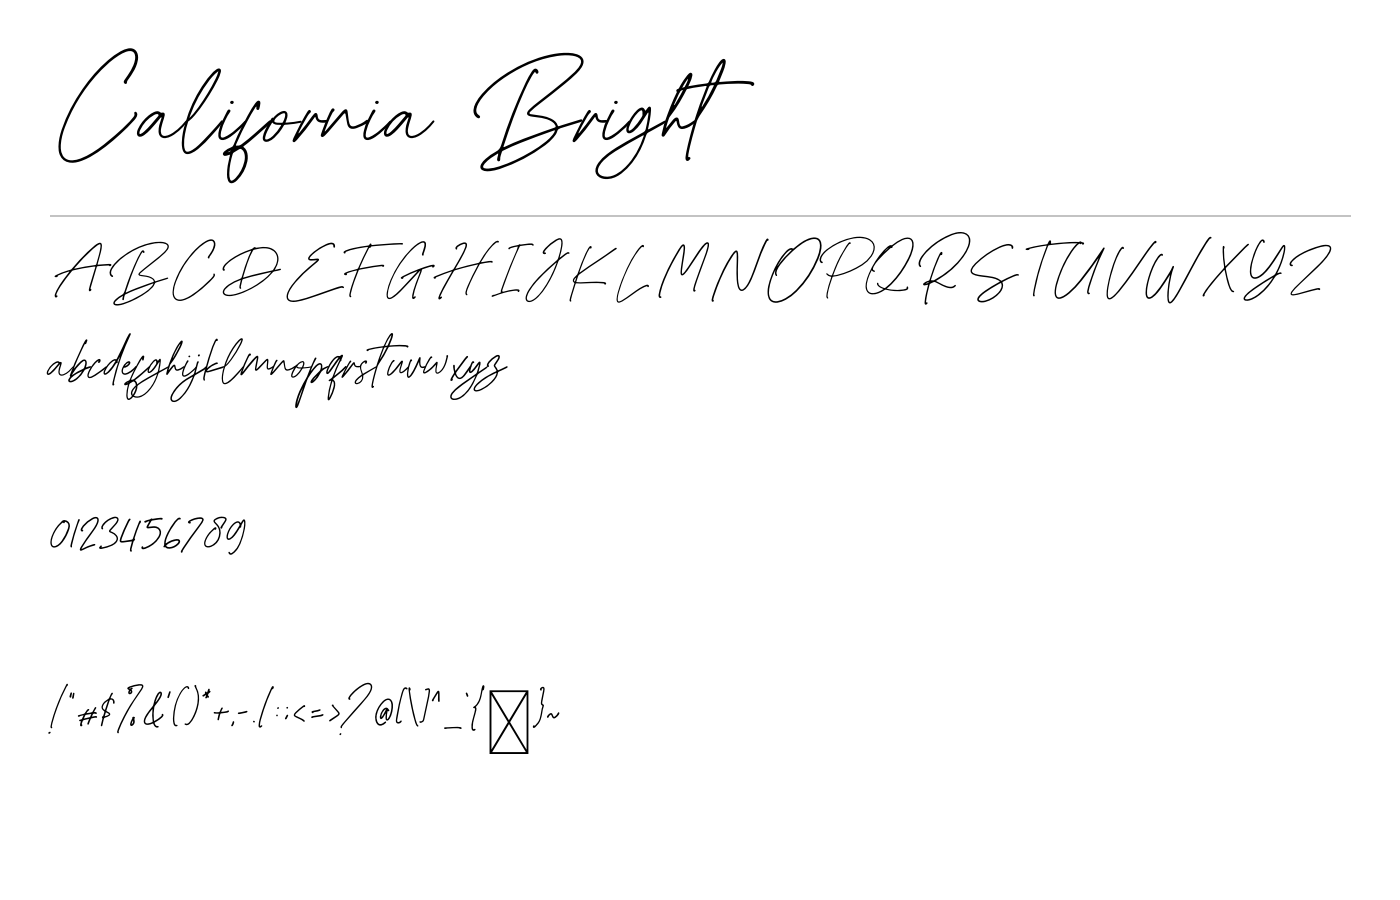 California Bright
ABCDEFGHIJKLMNOPQRSTUVWXYZ
abcdefghijklmnopqrstuvwxyz
0123456789
!"#$%&'()*+,-./:;<=>?@[\]^_`{}~